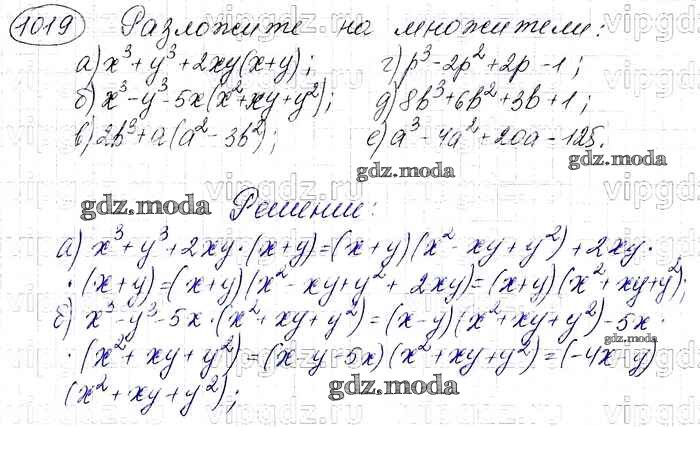 1019 Разложите на множители:
а) x³+y³+2xy(x+y);
б) x³-y³-5x(x²+xy+y²);
в) 2b³+a(a²-3b²);
г) p³-2p²+2p-1;
д) 8b³+6b²+3b+1;
е) a³-4a²+20a-125.
Решение:
а) x³+y³+2xy·(x+y)=(x+y)(x²-xy+y²)+2xy·
·(x+y)=(x+y)(x²-xy+y²+2xy)=(x+y)(x²+xy+y²);
б) x³-y³-5x·(x²+xy+y²)=(x-y)(x²+xy+y²)-5x·
·(x²+xy+y²)=(x-y-5x)(x²+xy+y²)=(-4x-y)
(x²+xy+y²);
gdz.moda
gdz.moda
gdz.moda
gdz.moda
gdz.moda